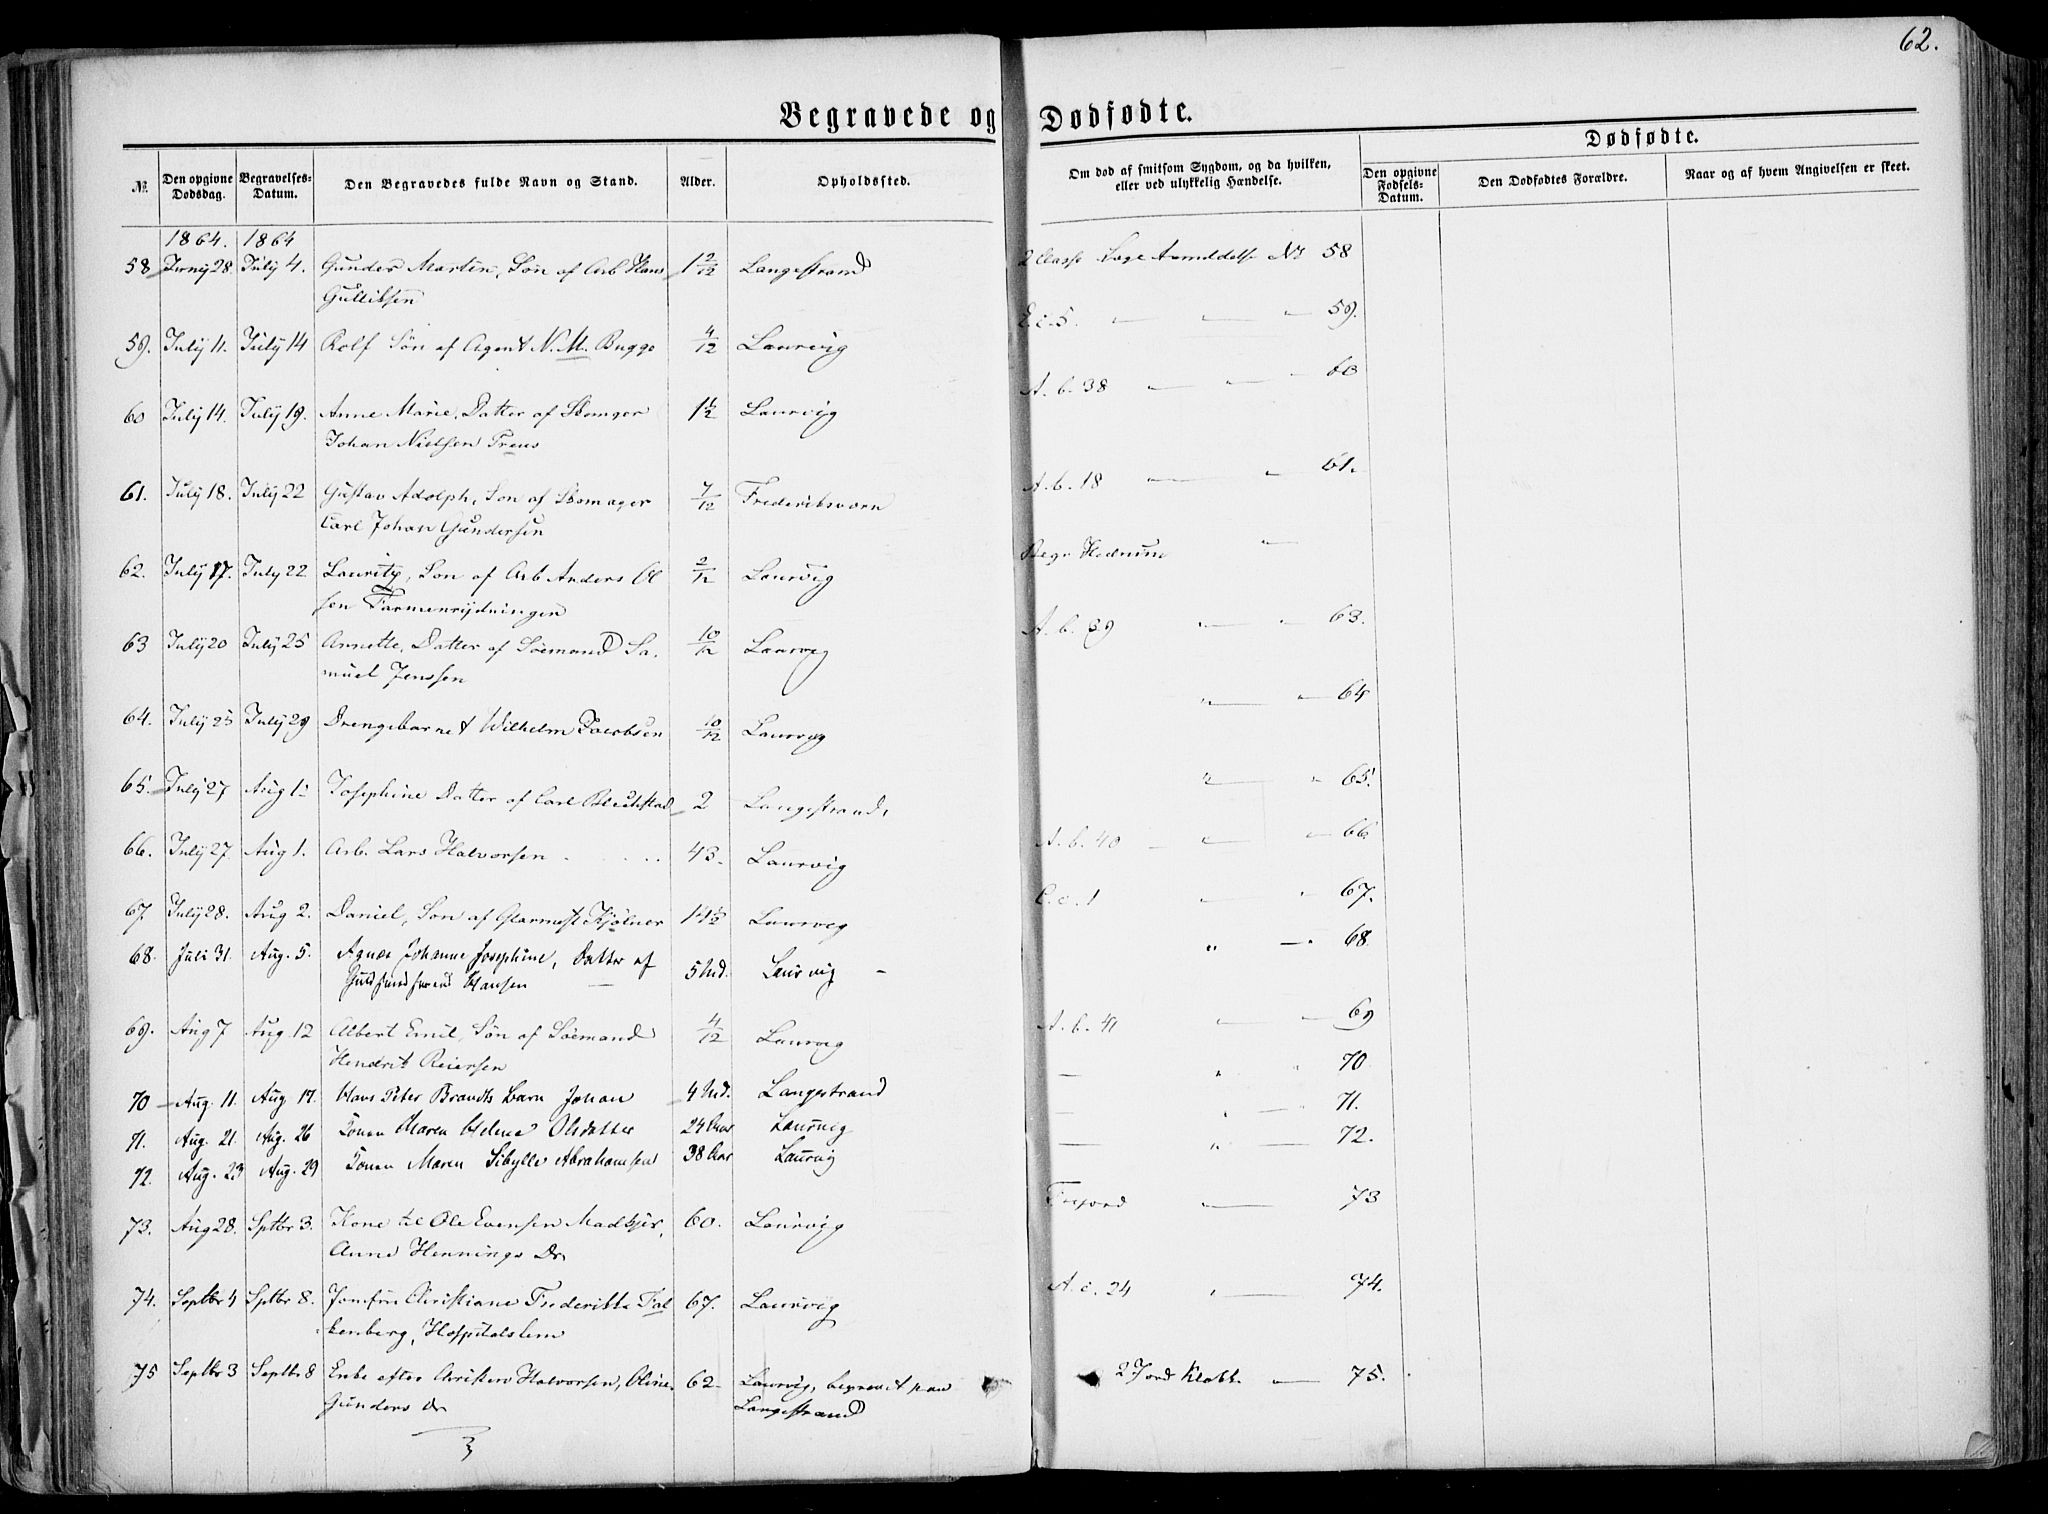 62.
Begravede og Dødfødte.
№ Den opgivne Dødsdag. Begravelses-Datum. Den Begravedes fulde Navn og Stand. Alder. Opholdssted. Om død af smitsom Sygdom, og da hvilken, eller ved ulykkelig Hændelse. Dødfødte.
Den opgivne Fødsels-Datum. Den Dødfødtes Forældre. Naar og af hvem Angivelsen er skeet.
1864. 1864
58 Juny 28. July 4. Gunder Martin, Søn af Arb Hans 1 2/12 Langestrand 2 Classe Læge Anmeldelse No 58
Gullibsen
59. July 11. July 14 Rolf Søn af Agent N. M. Bugge 4/12 Laurvig E. c. 5. " " " 59.
60 July 14. July 19. Anne Marie, Datter af Skomager 1 1/2 Laurvig A. b. 38 " " " 60
Johan Nielsen Treus
61. July 18. July 22 Gustav Adolph, Søn af Skomager 7/12 Frederiksværn A. b. 18 " " 61.
Carl Johan Gundersen
62. July 17. July 22 Lauritz, Søn af Arb Anders Ol 2/12 Laurvig Begr Hedrum "
sen Farmenrydningen
63 July 20 July 25 Annette, Datter af Söemand Sa- 10/12 Laurvig A. b. 39 " " 63.
muel Jenssen
64. July 25 July 29 Drengebarnet Wilhelm Jacobsen 10/12 Laurvig " " 64
65. July 27 Aug 1. Josephine Datter af Carl 2 Langestrand, " " 65.
66. July 27 Aug 1. Arb. Lars Halvorsen 43. Laurvig A. b. 40 " " 66.
67 July 28. Aug 2. Daniel, Søn af Glarmest Kjölner Laurvig C. c. 1 " " 67.
68. Juli 31. Aug. 5. Agnes Johanne Josephine, Datter af 5 Md. Laurvig " " 68.
Hansen
69. Aug 7 Aug 12 Albert Emil, Søn af Söemand 4/12 Laurvig A. b. 41 " " 69
Hendrik Reiersen
70 Aug. 11. Aug. 17. Hans Peter Brandts barn Johan 4 Md. Langestrand " " 70
71. Aug. 21. Aug. 26 Konen Maren Helene Olsdatter 24 Aar Laurvig " " 71.
72. Aug. 23 Aug. 29 Konen Maren Sibylle Abrahamsen 38 Aar Laurvig " 72.
73. Aug 28. Sptbr 3. Kone til Ole Evensen Madkjer, 60. Laurvig " 73
Anne Hennings Dr
74. Septbr 4 Sptbr 8. Jomfru Christiane Frederikke Fal 67. Laurvig A. c. 24 " 74.
kenberg, Hospitalslem
75 Septbr 3 Septbr 8 Enke efter Christen Halvorsen, Oline 62 Laurvig, begravet paa 2 Jord Klokk. " 75.
Gunders Dr Langestrand